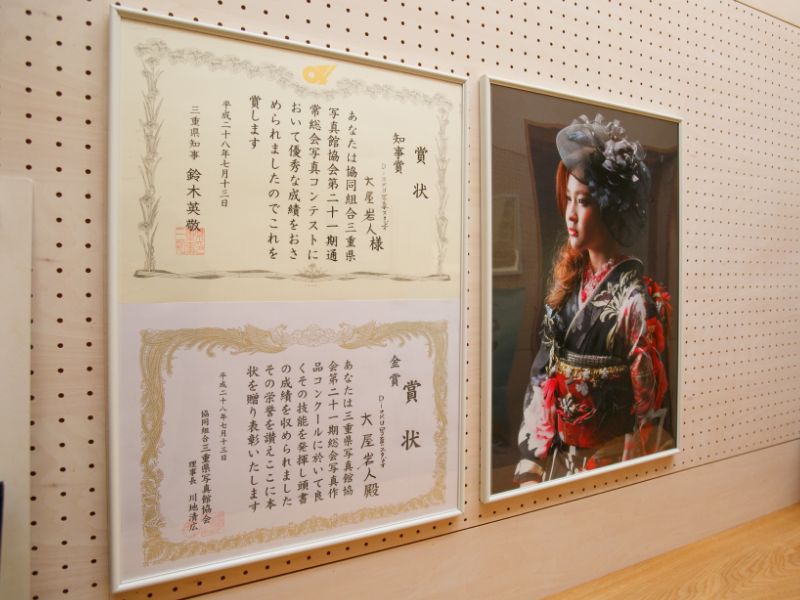 賞状
知事賞
大屋岩人様
あなたは協同組合三重県
写真館協会第二十一期通
常総会写真コンテストに
おいて優秀な成績をおさ
められましたのでこれを
賞します
平成二十八年七月十三日
三重県知事 鈴木英敬
賞状
金賞
大屋岩人殿
あなたは三重県写真館協
会第二十一期総会写真作
品コンクールに於いて良
くその技能を発揮し頭書
の成績を収められました
その栄誉を讃えここに本
状を贈り表彰いたします
平成二十八年七月十三日
協同組合三重県写真館協会
理事長 川地清広